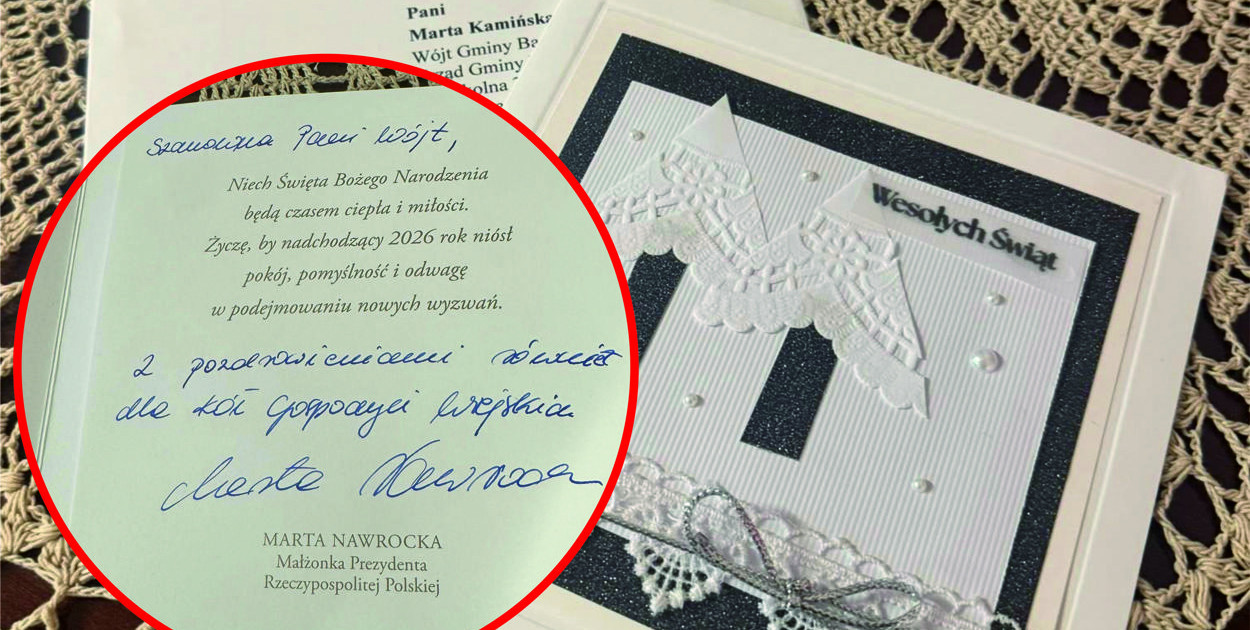 Pani
Marta Kamińska
Wójt Gminy Ba
ząd Gminy
olna
Wesołych Świąt
Szanowna Pani Wójt,
Niech Święta Bożego Narodzenia
będą czasem ciepła i miłości.
Życzę, by nadchodzący 2026 rok niósł
pokój, pomyślność i odwagę
w podejmowaniu nowych wyzwań.
Z pozdrowieniami również
dla Kół Gospodyń Wiejskich
Marta Nawrocka
MARTA NAWROCKA
Małżonka Prezydenta
Rzeczypospolitej Polskiej